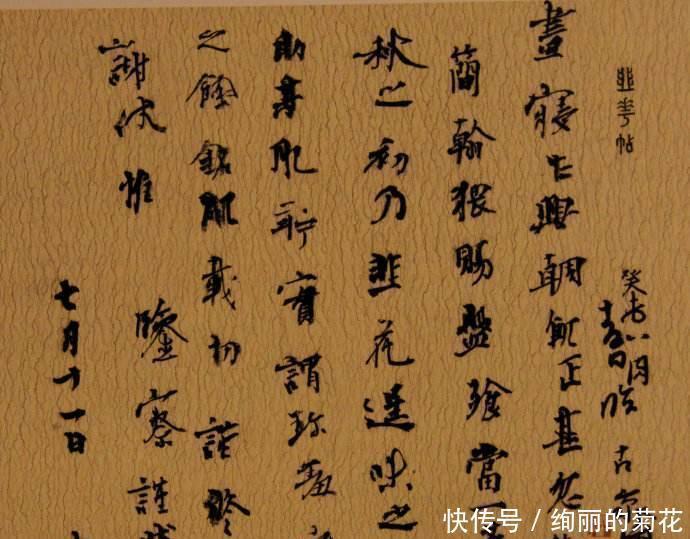 韭華帖
晝寢乍興輖飢正甚忽
簡翰猥賜盤飧當一
秋之初乃韭花逞味之
助其肥羜實謂珍羞
之餘銘肌載切謹修
謝伏惟
鑒察謹狀
七月十一日
快传号 / 绚丽的菊花